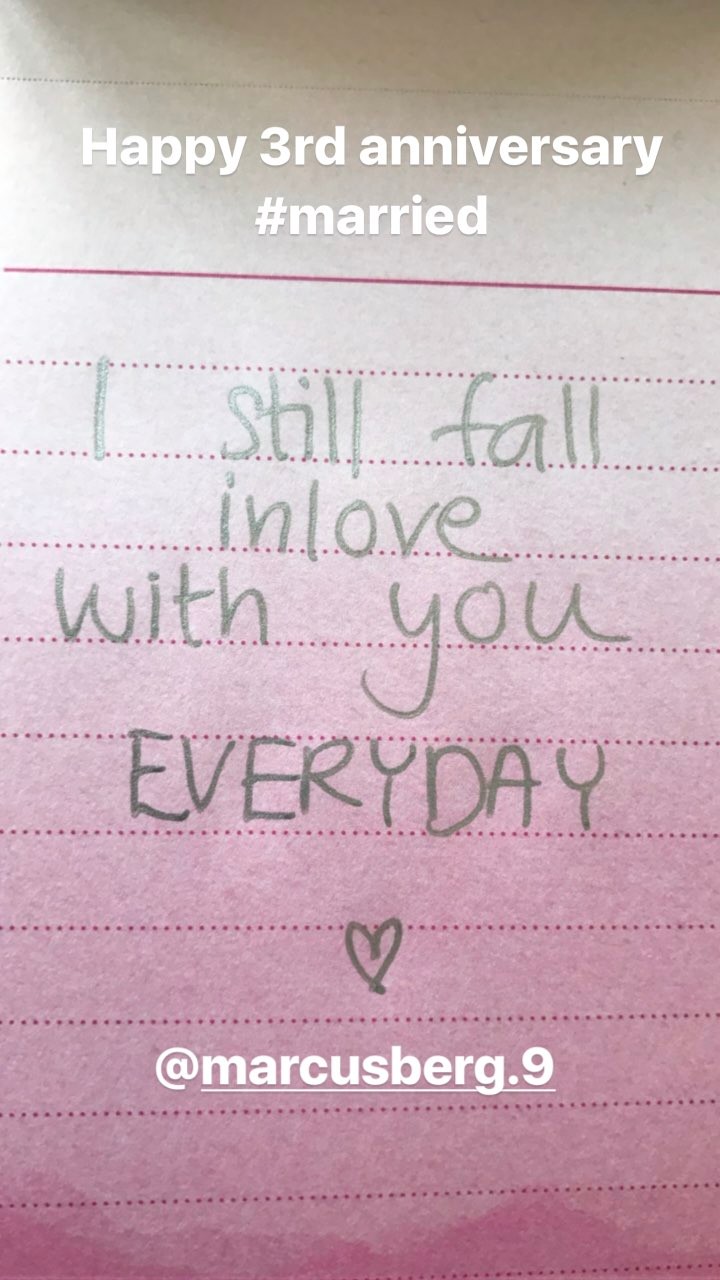 Happy 3rd anniversary
#married
I still fall
inlove
with you
EVERYDAY
@marcusberg.9